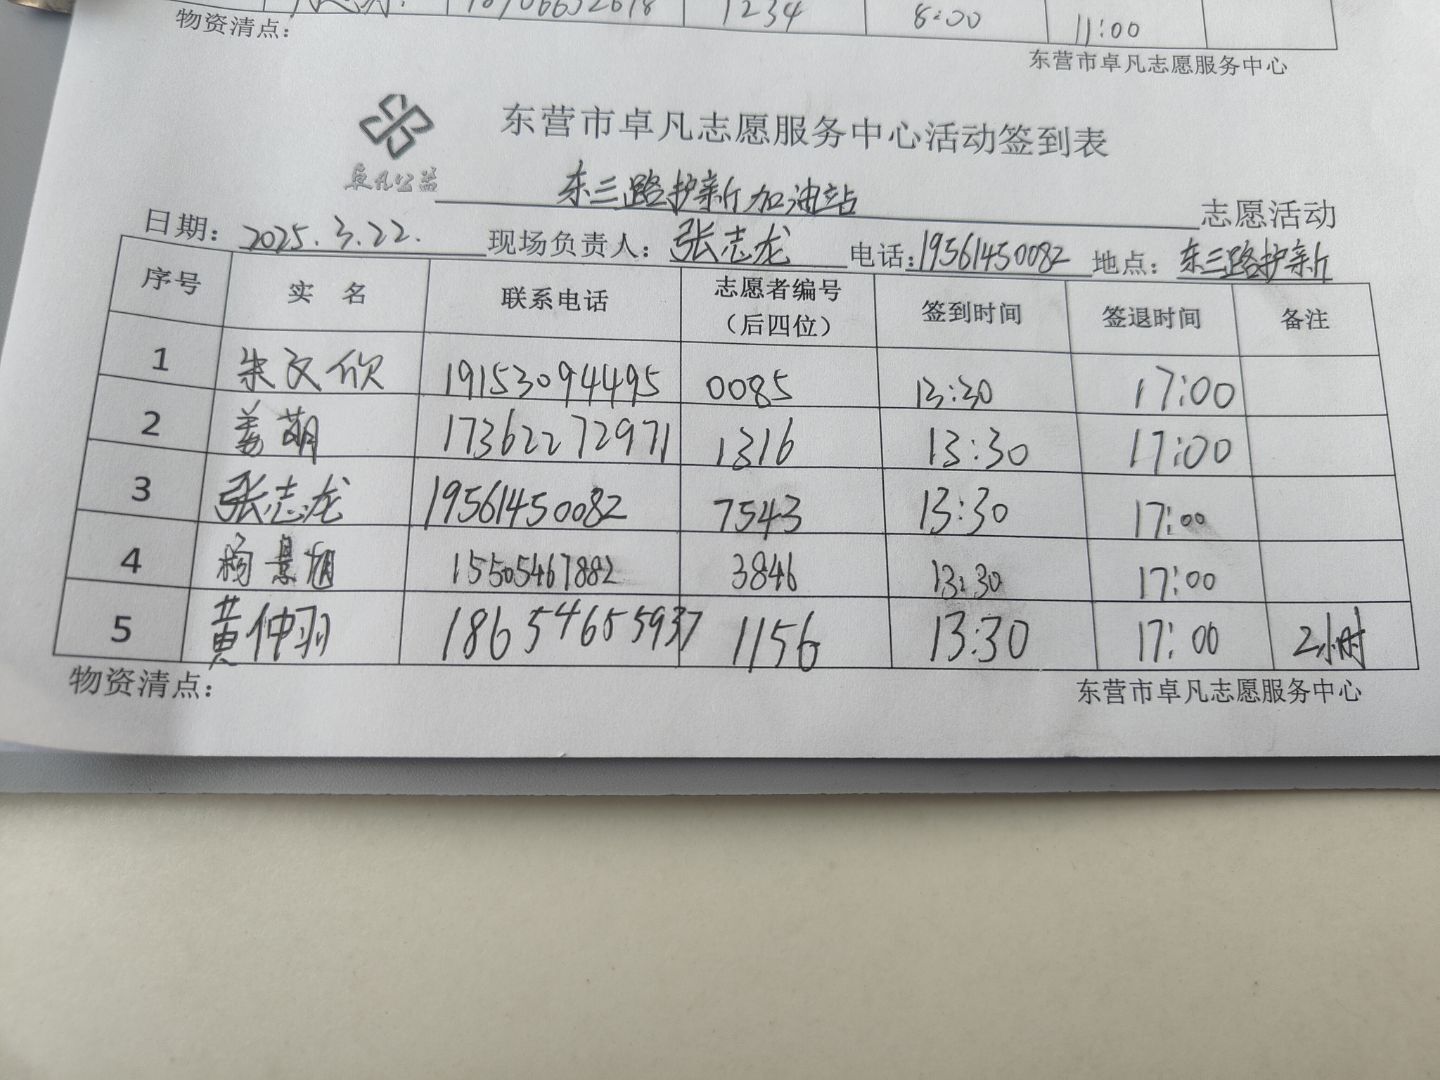 18706652678 1234 8:00 11:00
物资清点：
东营市卓凡志愿服务中心
卓凡公益
东营市卓凡志愿服务中心活动签到表
东三路护新加油站 志愿活动
日期：2025.3.22. 现场负责人：张志龙 电话：19561450082 地点：东三路护新
序号 实 名 联系电话 志愿者编号（后四位） 签到时间 签退时间 备注
1 朱文欣 19153094495 0085 13:30 17:00
2 姜萌 17362272971 1316 13:30 17:00
3 张志龙 19561450082 7543 13:30 17:00
4 杨景旭 15505467882 3846 13:30 17:00
5 黄仲羽 18654655937 1156 13:30 17:00 2小时
物资清点：
东营市卓凡志愿服务中心